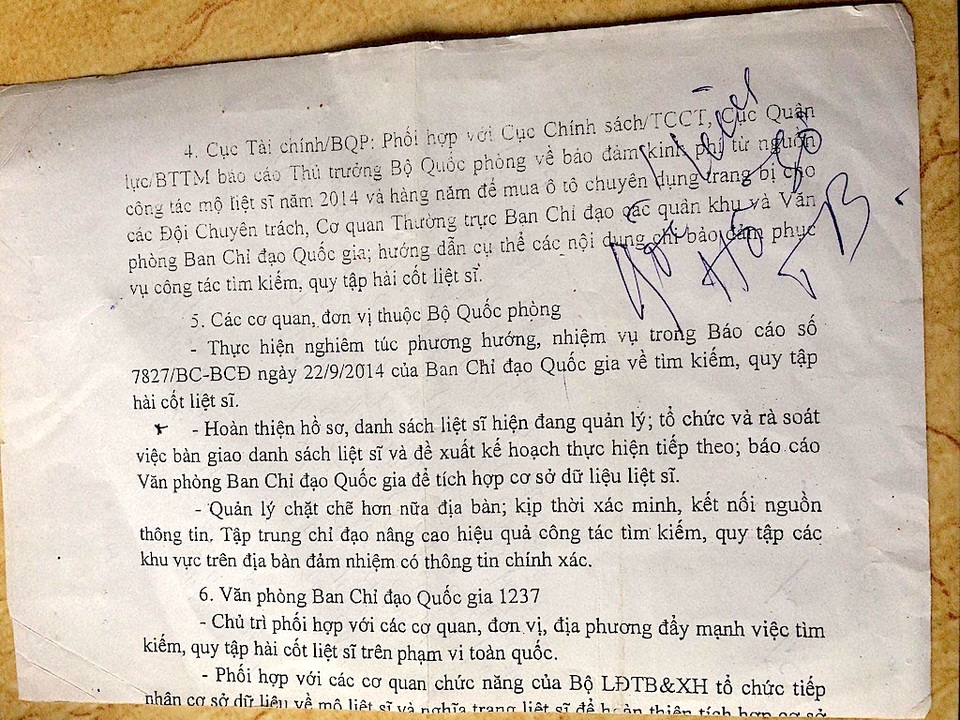 4. Cục Tài chính/BQP: Phối hợp với Cục Chính sách/TCCT, Cục Quân
lực/BTTM báo cáo Thủ trưởng Bộ Quốc phòng về bảo đảm kinh phí từ nguồn
công tác mộ liệt sĩ năm 2014 và hàng năm để mua ô tô chuyên dụng trang bị cho
các Đội Chuyên trách, Cơ quan Thường trực Ban Chỉ đạo các quân khu và Văn
phòng Ban Chỉ đạo Quốc gia; hướng dẫn cụ thể các nội dung chi bảo đảm phục
vụ công tác tìm kiếm, quy tập hài cốt liệt sĩ.
5. Các cơ quan, đơn vị thuộc Bộ Quốc phòng
- Thực hiện nghiêm túc phương hướng, nhiệm vụ trong Báo cáo số
7827/BC-BCĐ ngày 22/9/2014 của Ban Chỉ đạo Quốc gia về tìm kiếm, quy tập
hài cốt liệt sĩ.
- Hoàn thiện hồ sơ, danh sách liệt sĩ hiện đang quản lý; tổ chức và rà soát
việc bàn giao danh sách liệt sĩ và đề xuất kế hoạch thực hiện tiếp theo; báo cáo
Văn phòng Ban Chỉ đạo Quốc gia để tích hợp cơ sở dữ liệu liệt sĩ.
- Quản lý chặt chẽ hơn nữa địa bàn; kịp thời xác minh, kết nối nguồn
thông tin. Tập trung chỉ đạo nâng cao hiệu quả công tác tìm kiếm, quy tập các
khu vực trên địa bàn đảm nhiệm có thông tin chính xác.
6. Văn phòng Ban Chỉ đạo Quốc gia 1237
- Chủ trì phối hợp với các cơ quan, đơn vị, địa phương đẩy mạnh việc tìm
kiếm, quy tập hài cốt liệt sĩ trên phạm vi toàn quốc.
- Phối hợp với các cơ quan chức năng của Bộ LĐTB&XH tổ chức tiếp
nhận cơ sở dữ liệu về mộ liệt sĩ và nghĩa trang liệt sĩ để hoàn thiện tích hợp cơ sở